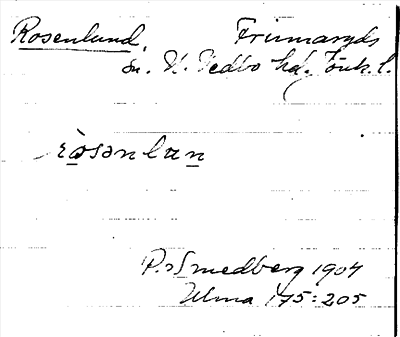 Rosenlund, Frinnaryds
sn. N. Vedbo hd. Jönk. l.
ròsənlun
P. Smedberg 1904
Ulma 175:205